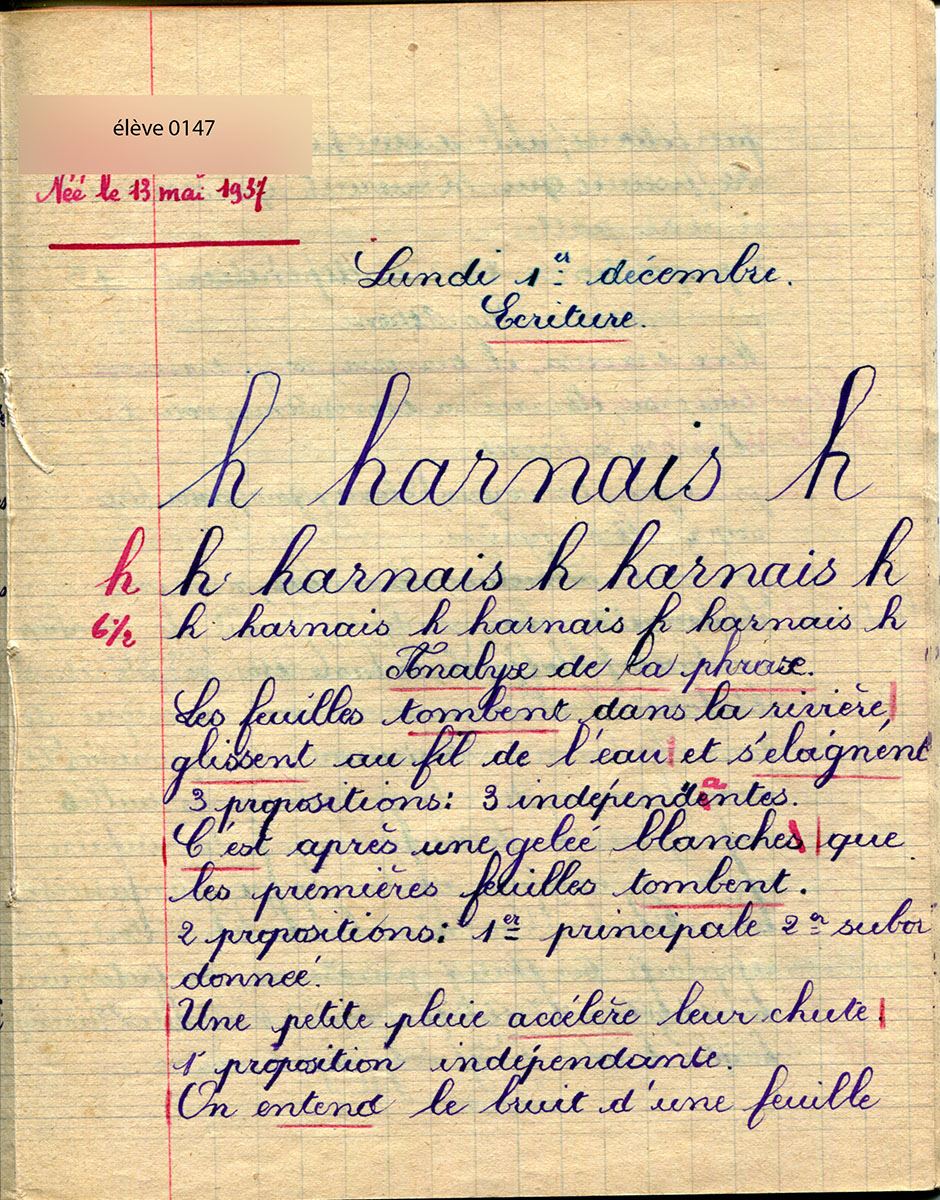 élève 0147
Née le 13 mai 1937
Lundi 1er décembre.
Ecriture.
h harnais h
h h harnais h harnais h
6½ h harnais h harnais h harnais h
Analyse de la phrase.
Les feuilles tombent dans la rivière,
glissent au fil de l'eau et s'élaignent
3 propositions: 3 indépendantes.
C'est après une gelée blanche que
les premières feuilles tombent.
2 propositions: 1er principale 2er subor
donnée.
Une petite pluie accélère leur chute.
1 proposition indépendante.
On entend le bruit d'une feuille